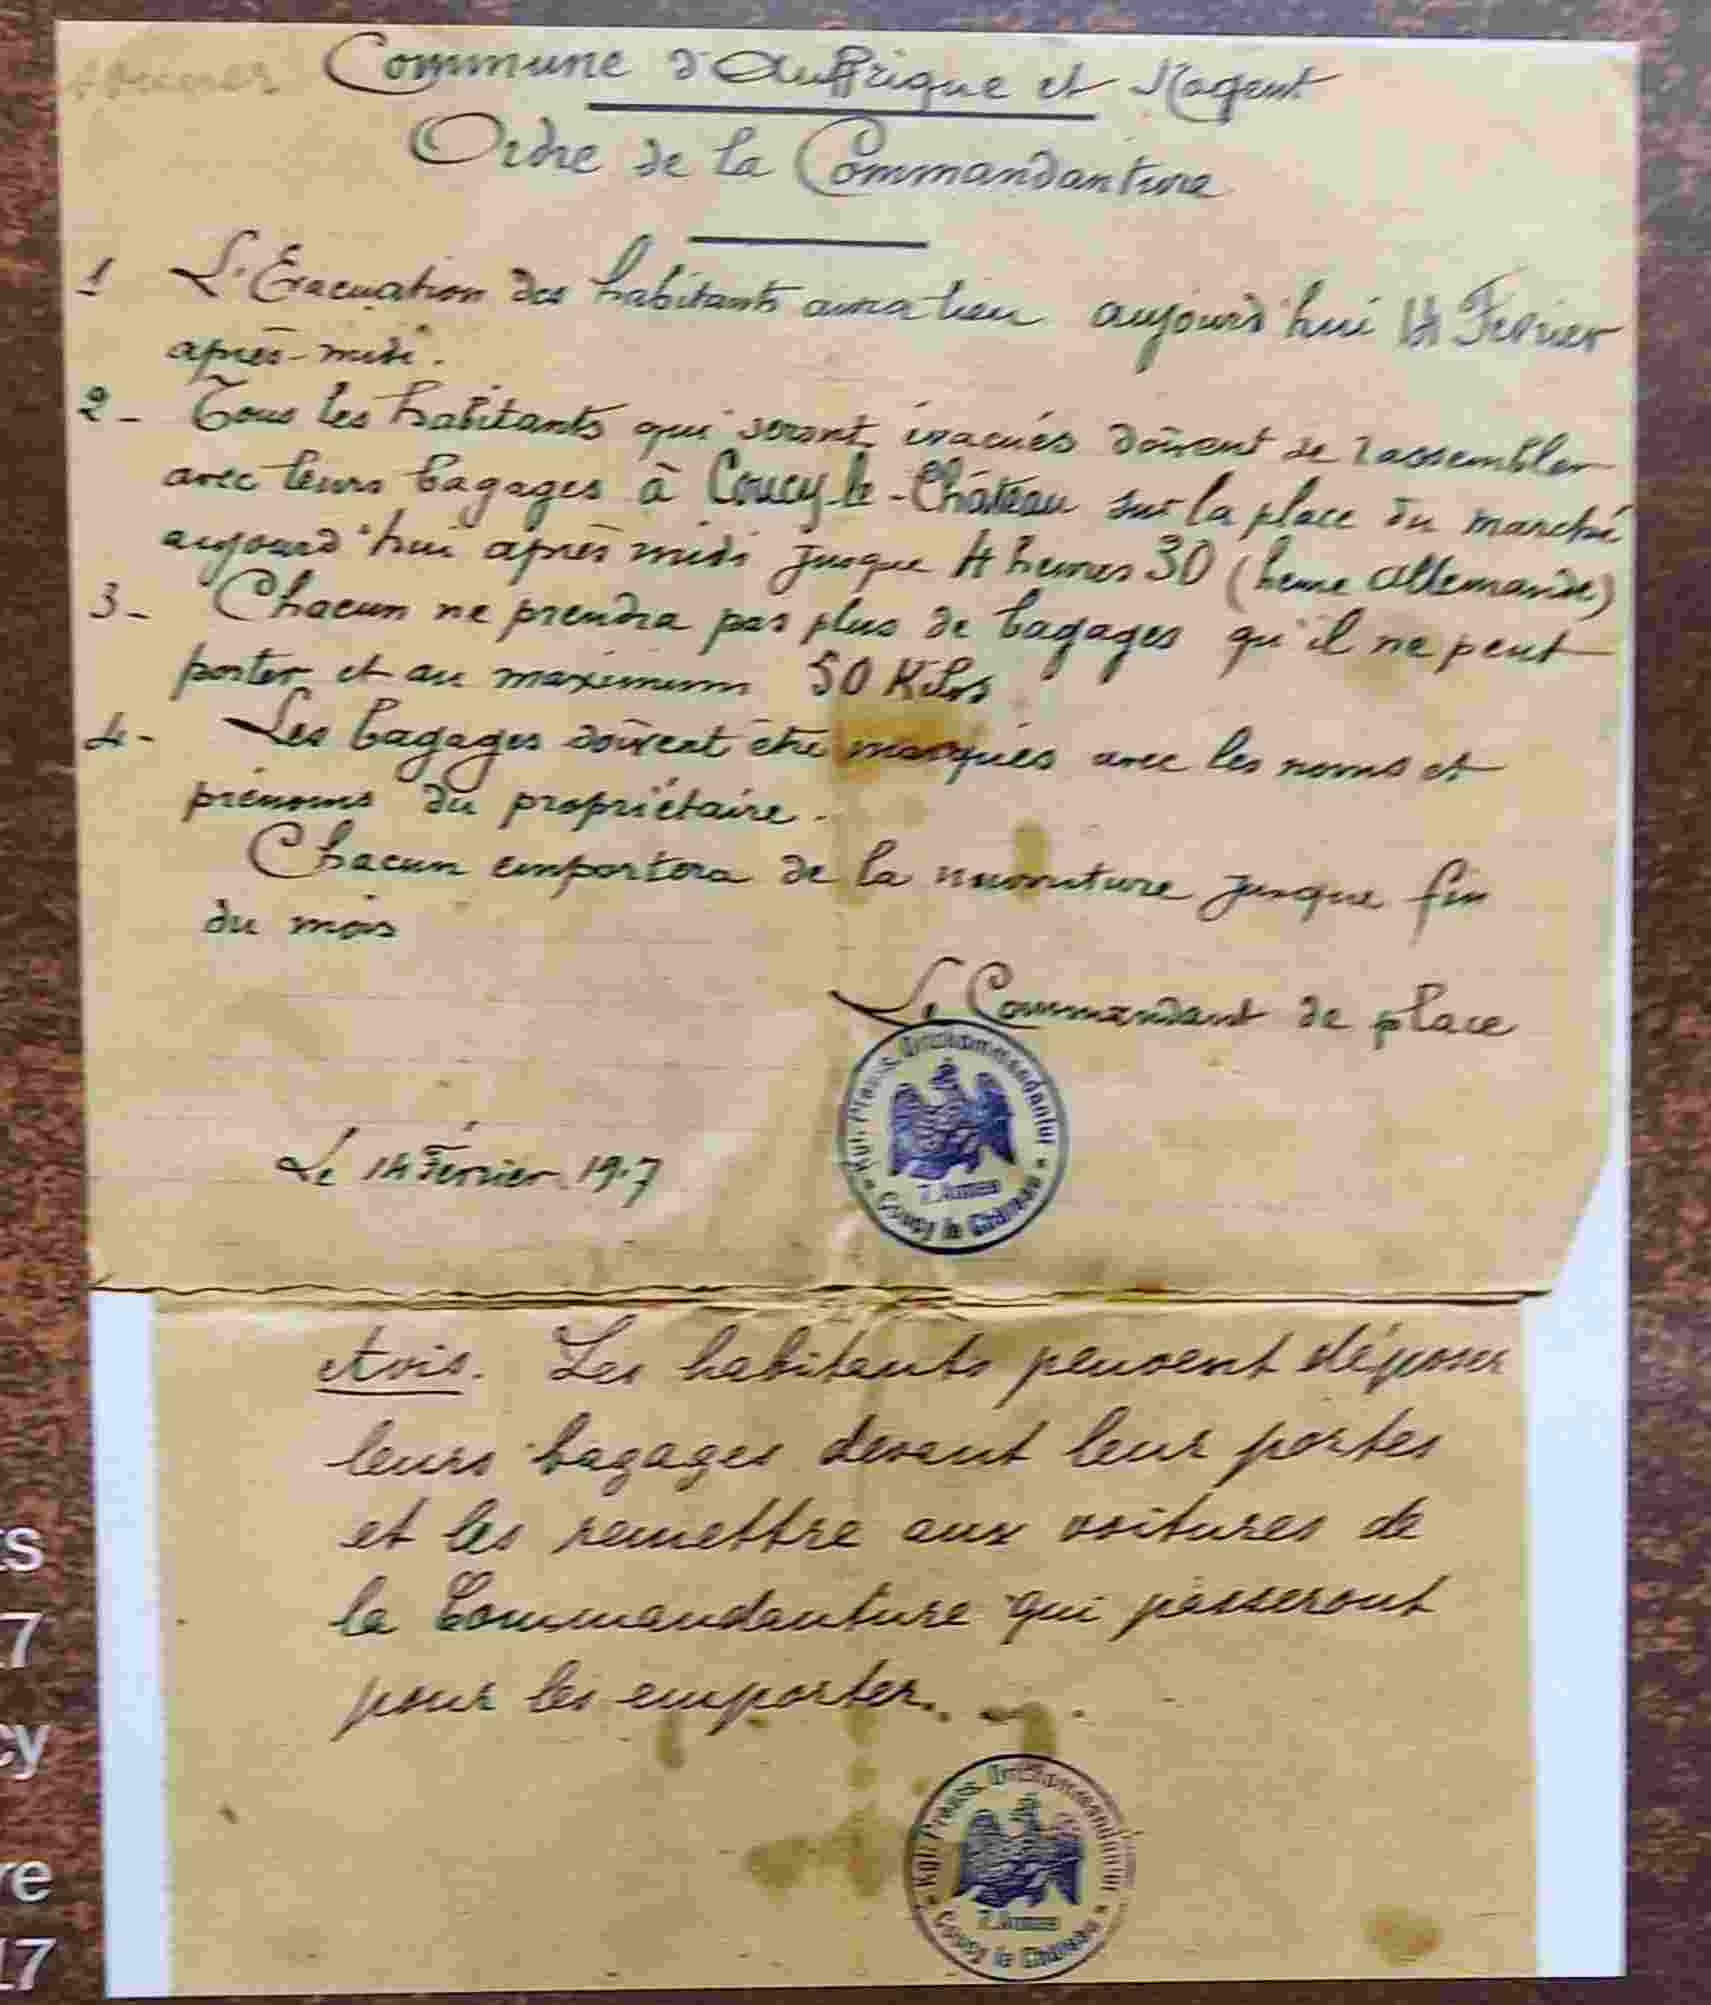 Commune d'Auffrique et Nogent
Ordre de la Commandanture
1 L'Evacuation des habitants aura lieu aujourd'hui 14 Fevrier
après-midi.
2- Tous les habitants qui seront évacués doivent se rassembler
avec leurs bagages à Coucy-le-Château sur la place du marché
aujourd'hui après midi jusque 4 heures 30 (heure Allemande)
3- Chacun ne prendra pas plus de bagages qu'il ne peut
porter et au maximum 50 Kilos
4- Les bagages doivent être marqués avec les noms et
prénoms du propriétaire.
Chacun emportera de la nourriture jusque fin
du mois
Le Commandant de place
Kgl. Preuss. Ortskommandantur
Coucy le Château
Le 14 Fevrier 1917
Avis. Les habitants peuvent déposer
leurs bagages devant leur portes
et les remettre aux voitures de
la Commandanture qui passeront
pour les emporter.
Kgl. Preuss. Ortskommandantur
Coucy le Château
ts
17
cy
re
17